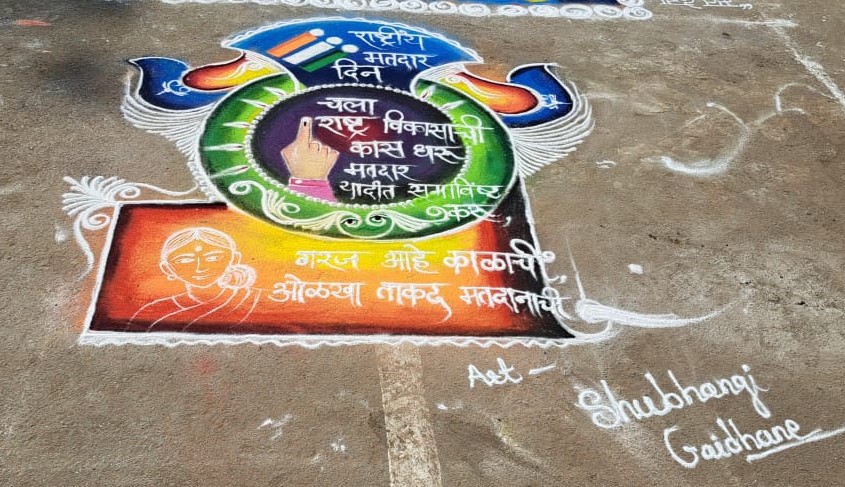 राष्ट्रीय
मतदार
दिन
चला
राष्ट्र विकासाची
कास धरू
मतदार
यादीत समाविष्ट
करू,
गरज आहे काळाची,
ओळखा ताकद मतदानाची
Art -
Shubhangi
Gaidhane